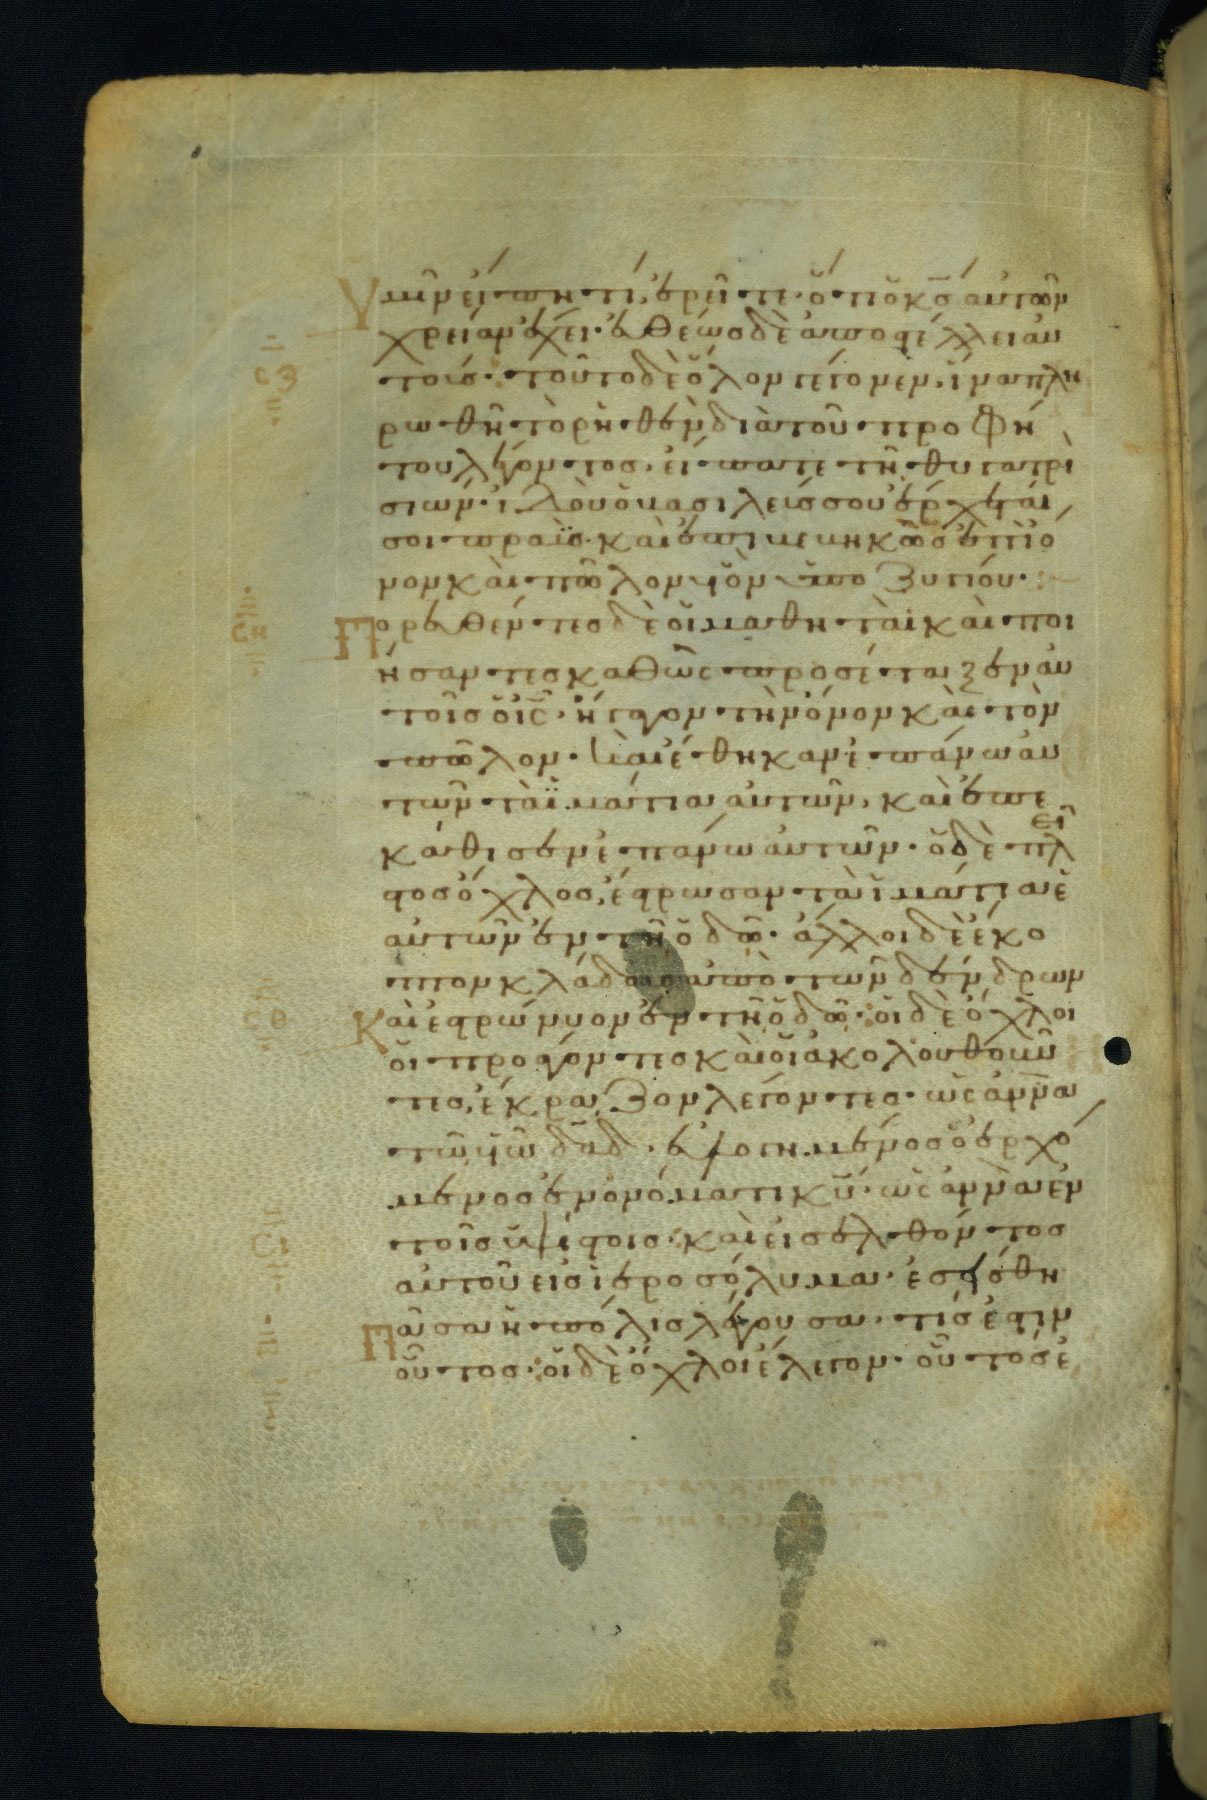 ὑμῖν εἴπη τι, ἐρεῖτε· ὅτι ὁ κ̅ς̅ αὐτῶν
χρείαν ἔχει· εὐθέως δὲ ἀποστέλλει αὐ
τούς· τοῦτο δὲ ὅλον γέγονεν, ἵνα πλη
ρωθῆ τὸ ῥηθὲν διὰ τοῦ προφή
του λέγοντος· εἴπατε τῆ θυγατρὶ
σιών· ἰδοὺ ὁ βασιλεύς σου ἔρχεταί
σοι πραΰς· καὶ ἐπιβεβηκὼς ἐπὶ ὄ
νον καὶ πῶλον υἱὸν ὑποζυγίου·
Πορευθέντες δὲ οἱ μαθηταὶ καὶ ποι
ήσαντες καθὼς προσέταξεν αὐ
τοῖς ὁ ι̅ς̅· ἤγαγον τὴν ὄνον καὶ τὸν
πῶλον· καὶ ἔθηκαν ἐπάνω αὐ
τῶν τὰ ἱμάτια αὐτῶν, καὶ ἐπε
κάθισεν ἐπάνω αὐτῶν· ὁ δὲ πλεῖ
στος ὄχλος, ἔστρωσαν τὰ ἱμάτια ἑ
αυτῶν ἐν τῆ ὁδῶ· ἄλλοι δὲ ἔκο
πτον κλάδους ἀπὸ τῶν δένδρων
Καὶ ἐστρώννυον ἐν τῆ ὁδῶ· οἱ δὲ ὄχλοι
οἱ προάγοντες καὶ οἱ ἀκολουθοῦν
τες, ἔκραζον λέγοντες· ὡς ἀννὰ
τῶ υἱῶ δα̅δ· εὐλογημένος ὁ ἐρχό
μενος ἐν ὀνόματι κ̅υ̅· ὡς ἀννὰ ἐν
τοῖς ὑψίστοις· καὶ εἰσελθόντος
αὐτοῦ εἰς ἱεροσόλυμα· ἐσείσθη
Πᾶσα ἡ πόλις λέγουσα· τίς ἐστιν
οὗτος· οἱ δὲ ὄχλοι ἔλεγον· οὗτός ἐ